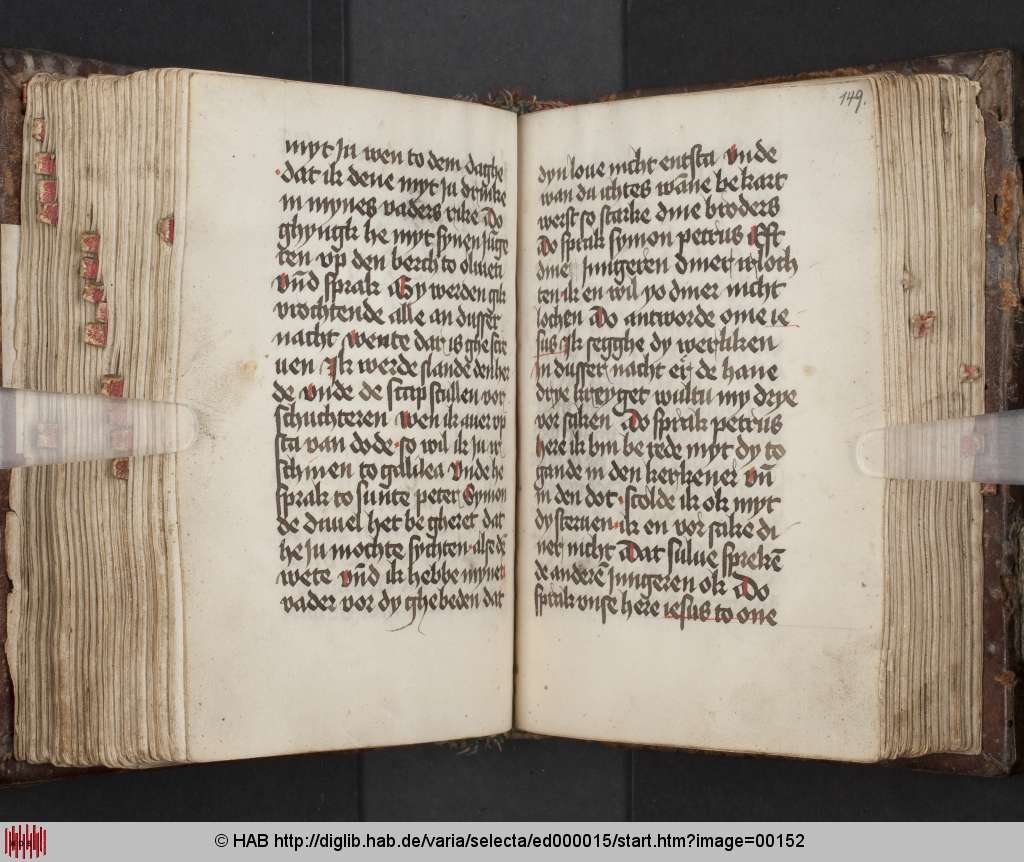 myt Ju wen to dem daghe
dat ik dene myt ju drincke
in mynes vaders rike Do
ghyngk he myt synen Junge
ren vp den berch to oliueti
vnd sprak Gy werden gik
vrochtende alle an dusser
nacht wente dat is ghescre
uen Ik werde slande den her
de vnde de scap scullen vor
schuchteren wen ik auer vp
sta van dode so wil ik ju ir
schinen to galilea vnde he
sprak to sunte peter Symon
de duuel het begheret dat
he ju mochte sychten alse dē
wete vnd ik hebbe mynen
vader vor dy ghebeden dat
149.
dyn loue nicht entsta vnde
wan du ichtes wāne bekart
werst so starke dine broders
Do sprak symon petrus Efft
dine jungeren diner vorloch
ten ik en wil yo diner nicht
lochen Do antworde ome ie
sus Ik segghe dy werliken
in dusser nacht er de hane
drye kreyget wultu my drye
vorsaken Do sprak petrus
here ik bin berede myt dy to
gande in den kerkener vn̄
in den dot scolde ik ok myt
dy steruen ik en vorsake di
ner nicht Dat sulue sprekē
de anderē jungeren ok Do
sprak vnse here iesus to one
© HAB http://diglib.hab.de/varia/selecta/ed000015/start.htm?image=00152